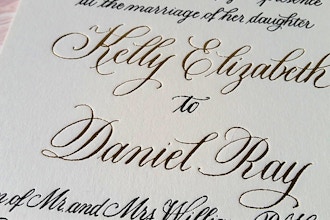 presence
at the marriage of her daughter
Kelly Elizabeth
to
Daniel Ray
of Mr. and Mrs. William